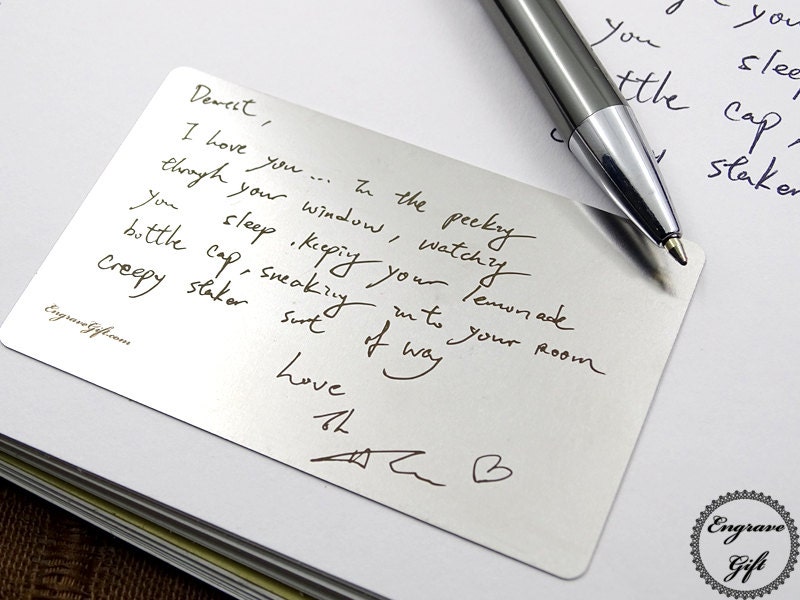 Dearest,
I love you... In the peeking
through your window, watching
you sleep, keeping your lemonade
bottle cap, sneaking into your room
creepy staker surt of way
Love
EngraveGift.com
you
you
slee
ttle cap,
staker
Engrave
Gift